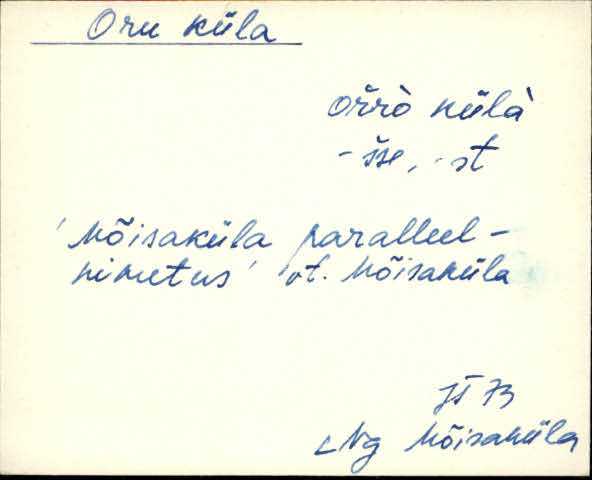 Oru küla
ořrò külà
- šse, - st
'Mõisaküla paralleel-
nimetus' vt. Mõisaküla
JS 73
Ng Mõisaküla